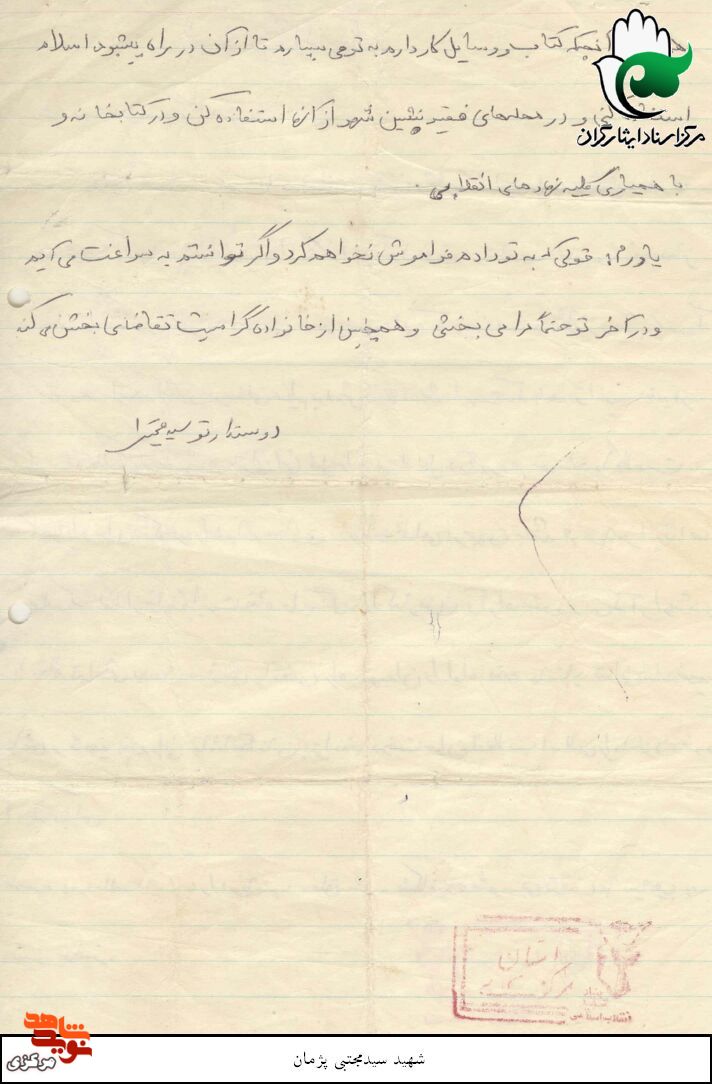 آنچه کتاب و وسایل کار دارم به تو می سپارم تا از آن در راه پیشبرد اسلام
مرکز اسناد ایثارگران
استفاده کنی و در محله‌های فقیر نشین شهر از آنها استفاده کن و در کتابخانه و
با همیاری کلیه نهادهای انقلابی.
یاورم: قولی که به تو دادم فراموش نخواهم کرد و اگر توانستم به سراغت می آیم
و در آخر تو حتماً مرا می بخشی و همچنین از خانواده گرامیت تقاضای بخشش می کنم
دوستدار تو سید مجتبی
استان
مرکزی
بنیاد
شهید
انقلاب اسلامی
نوید شاهد
مرکزی
شهید سیدمجتبی پژمان